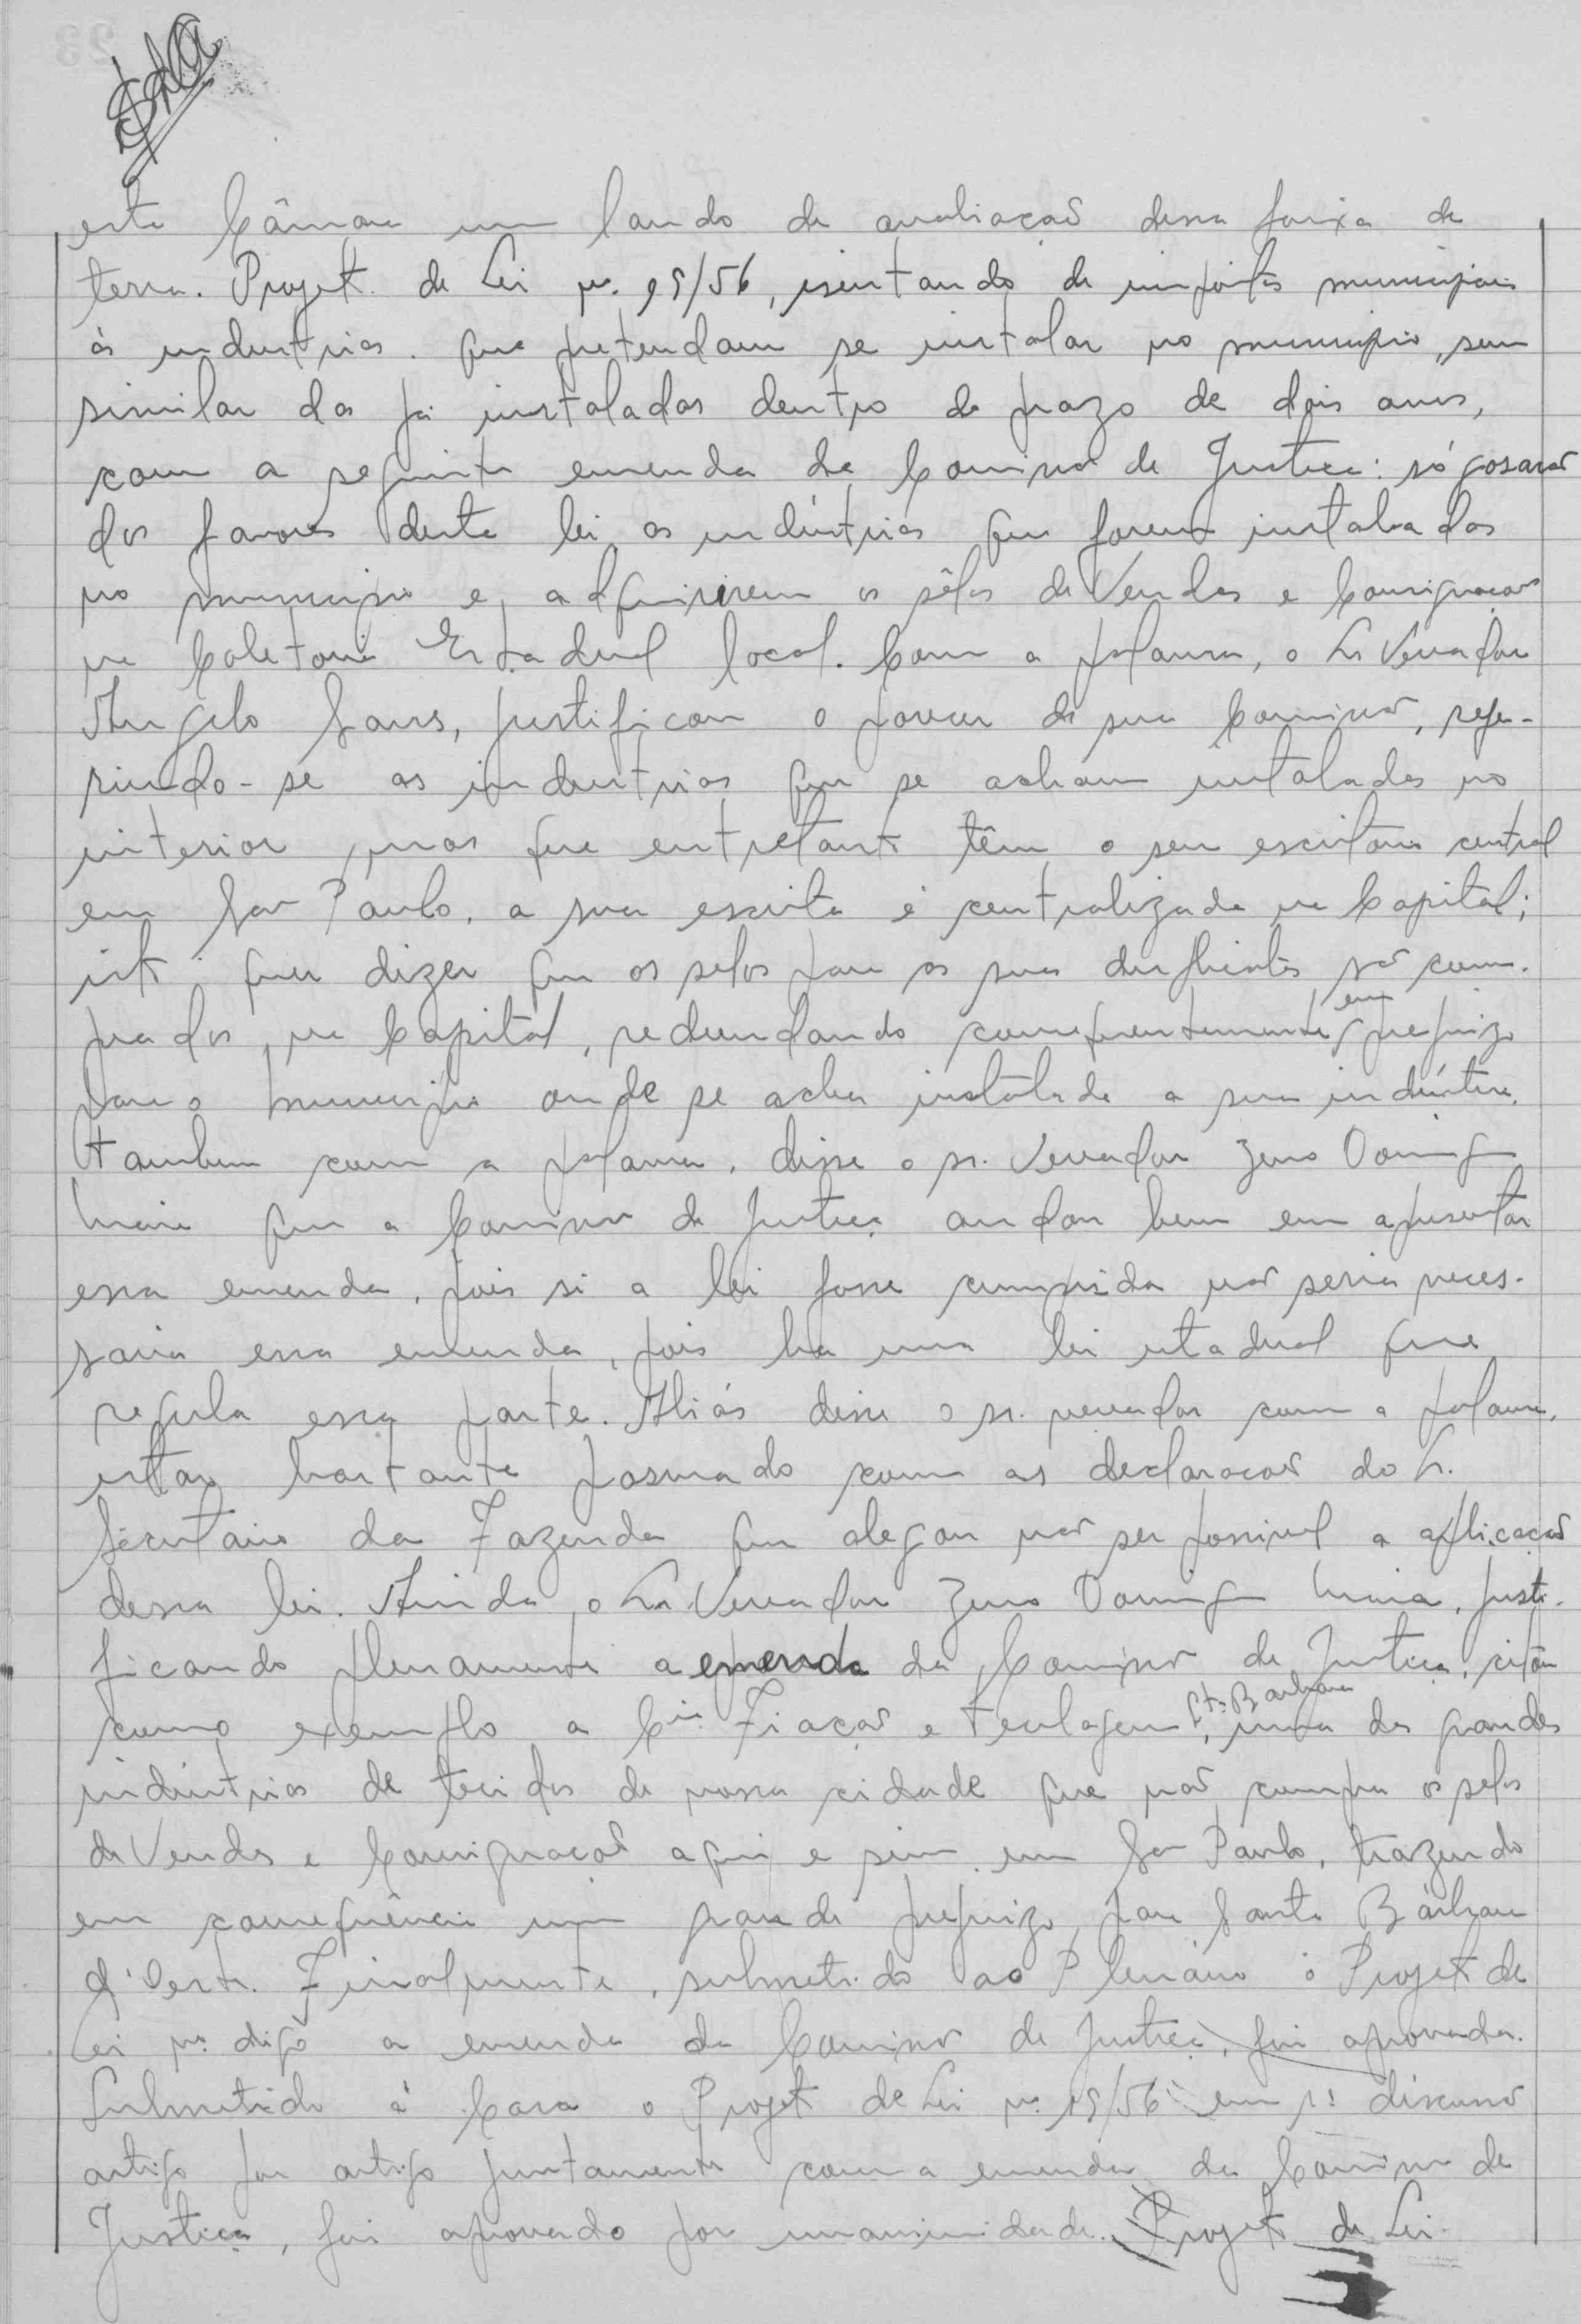 esta Câmara um laudo de avaliação dessa faixa de
terra. Projeto de Lei nº. 15/56, isentando de impostos municipais
ás industrias que pretendam se instalar no municipio, sem
similar das já instaladas dentro do prazo de dois anos,
com a seguinte emenda da Comissão de Justiça: só gosarão
dos favores desta lei as indústrias que forem instaladas
no municipio e adquirirem os sêlos de Vendas e Consignações
na Coletoria Estadual local. Com a palavra, o Sr Vereador
Angelo Sans, justificou o parecer de sua Comissão, refe-
rindo-se as industrias que se acham instaladas no
interior, mas que entretanto têm o seu escritorio central
em São Paulo, a sua escrita é centralizada na Capital;
isto quer dizer que os selos para as suas duplicatas são com-
prados na Capital, redundando consequentemente em prejuizo
para o municipio onde se acha instalada a sua indústria.
Tambem com a palavra, disse o sr. Vereador Zeno Domingues
Maia que a Comissão de Justiça andou bem em apresentar
essa emenda, pois si a lei fosse cumprida não seria neces-
saria essa emenda, pois ha uma lei estadual que
regula essa parte. Aliás disse o sr. vereador com a palavra,
estar bastante pasmado com as declarações do Sr.
Secretario da Fazenda que alegou não ser possivel a aplicação
dessa lei. Ainda o Sr. Vereador Zeno Domingues Maia, justi-
ficando plenamente a emenda da Comissão de Justiça, citou
como exemplo a Cia. Fiação e Tecelagem Sta. Barbara, uma das grandes
indústrias de tecidos de nossa cidade que não compra os selos
de Vendas e Consignações aqui e sim em São Paulo, trazendo
em consequência um grande prejuizo para Santa Bárbara
d'Oeste. Finalmente, submetido ao Plenário o Projeto de
Lei nº. digo a emenda da Comissão de Justiça, foi aprovada.
Submetido á Casa o Projeto de Lei nº. 15/56 em 1ª discussão
artigo por artigo juntamente com a emenda da Comissão de
Justiça, foi aprovado por unanimidade. Projeto de Lei